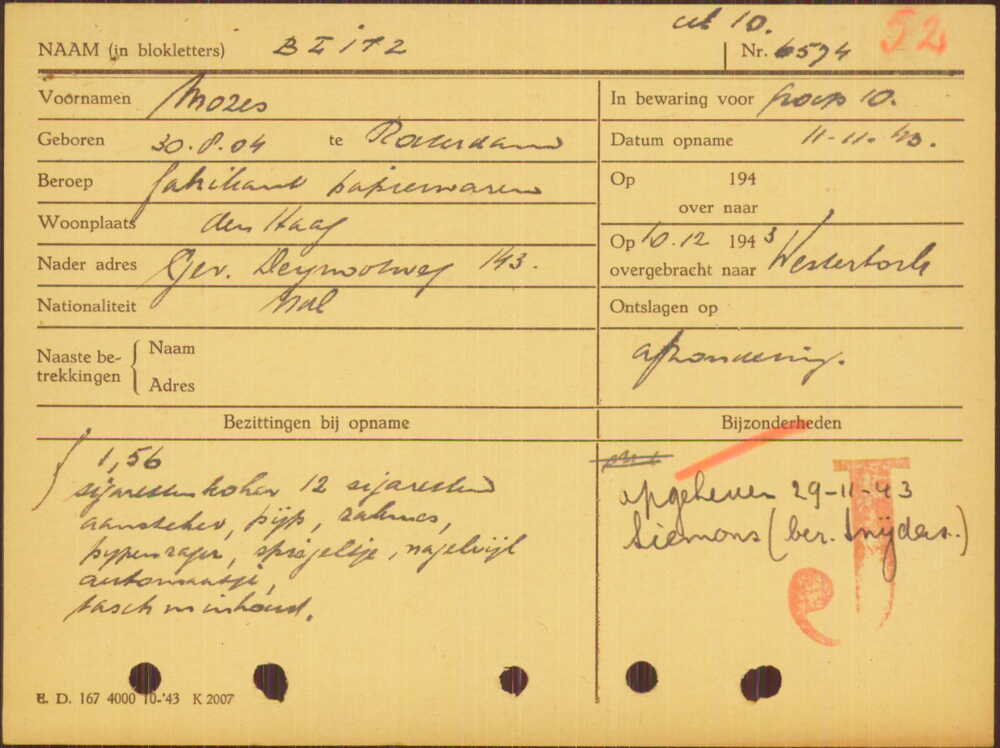 cel 10.
52
NAAM (in blokletters) BEITZ
Nr. 6594
Voornamen Mozes
In bewaring voor Groep 10.
Geboren 30.8.04 te Rotterdam
Datum opname 11-11.43.
Beroep fabrikant papierwaren
Op 194
over naar
Woonplaats den Haag
Op 10.12 1943
overgebracht naar Westerbork
Nader adres Gev. Deynootweg 143.
Nationaliteit Ndl
Ontslagen op
Naaste be-
trekkingen
Naam
Adres
afzondering.
Bezittingen bij opname
Bijzonderheden
1,56
sigarettenkoker 12 sigaretten
aansteker, pijp, zakmes,
pypenrager, spiegeltje, nagelvijl
automaatje,
tasch m inhoud.
opgeheven 29-11-43
Siemons (ber. Snijders.)
J
E. D. 167 4000 10-'43 K 2007